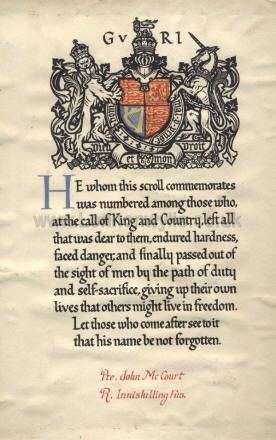 G V R I
Dieu et mon droit
HE whom this scroll commemorates
was numbered among those who,
at the call of King and Country, left all
that was dear to them, endured hardness,
faced danger, and finally passed out of
the sight of men by the path of duty
and self-sacrifice, giving up their own
lives that others might live in freedom.
Let those who come after see to it
that his name be not forgotten.
Pte. John McCourt
R. Inniskilling Fus.